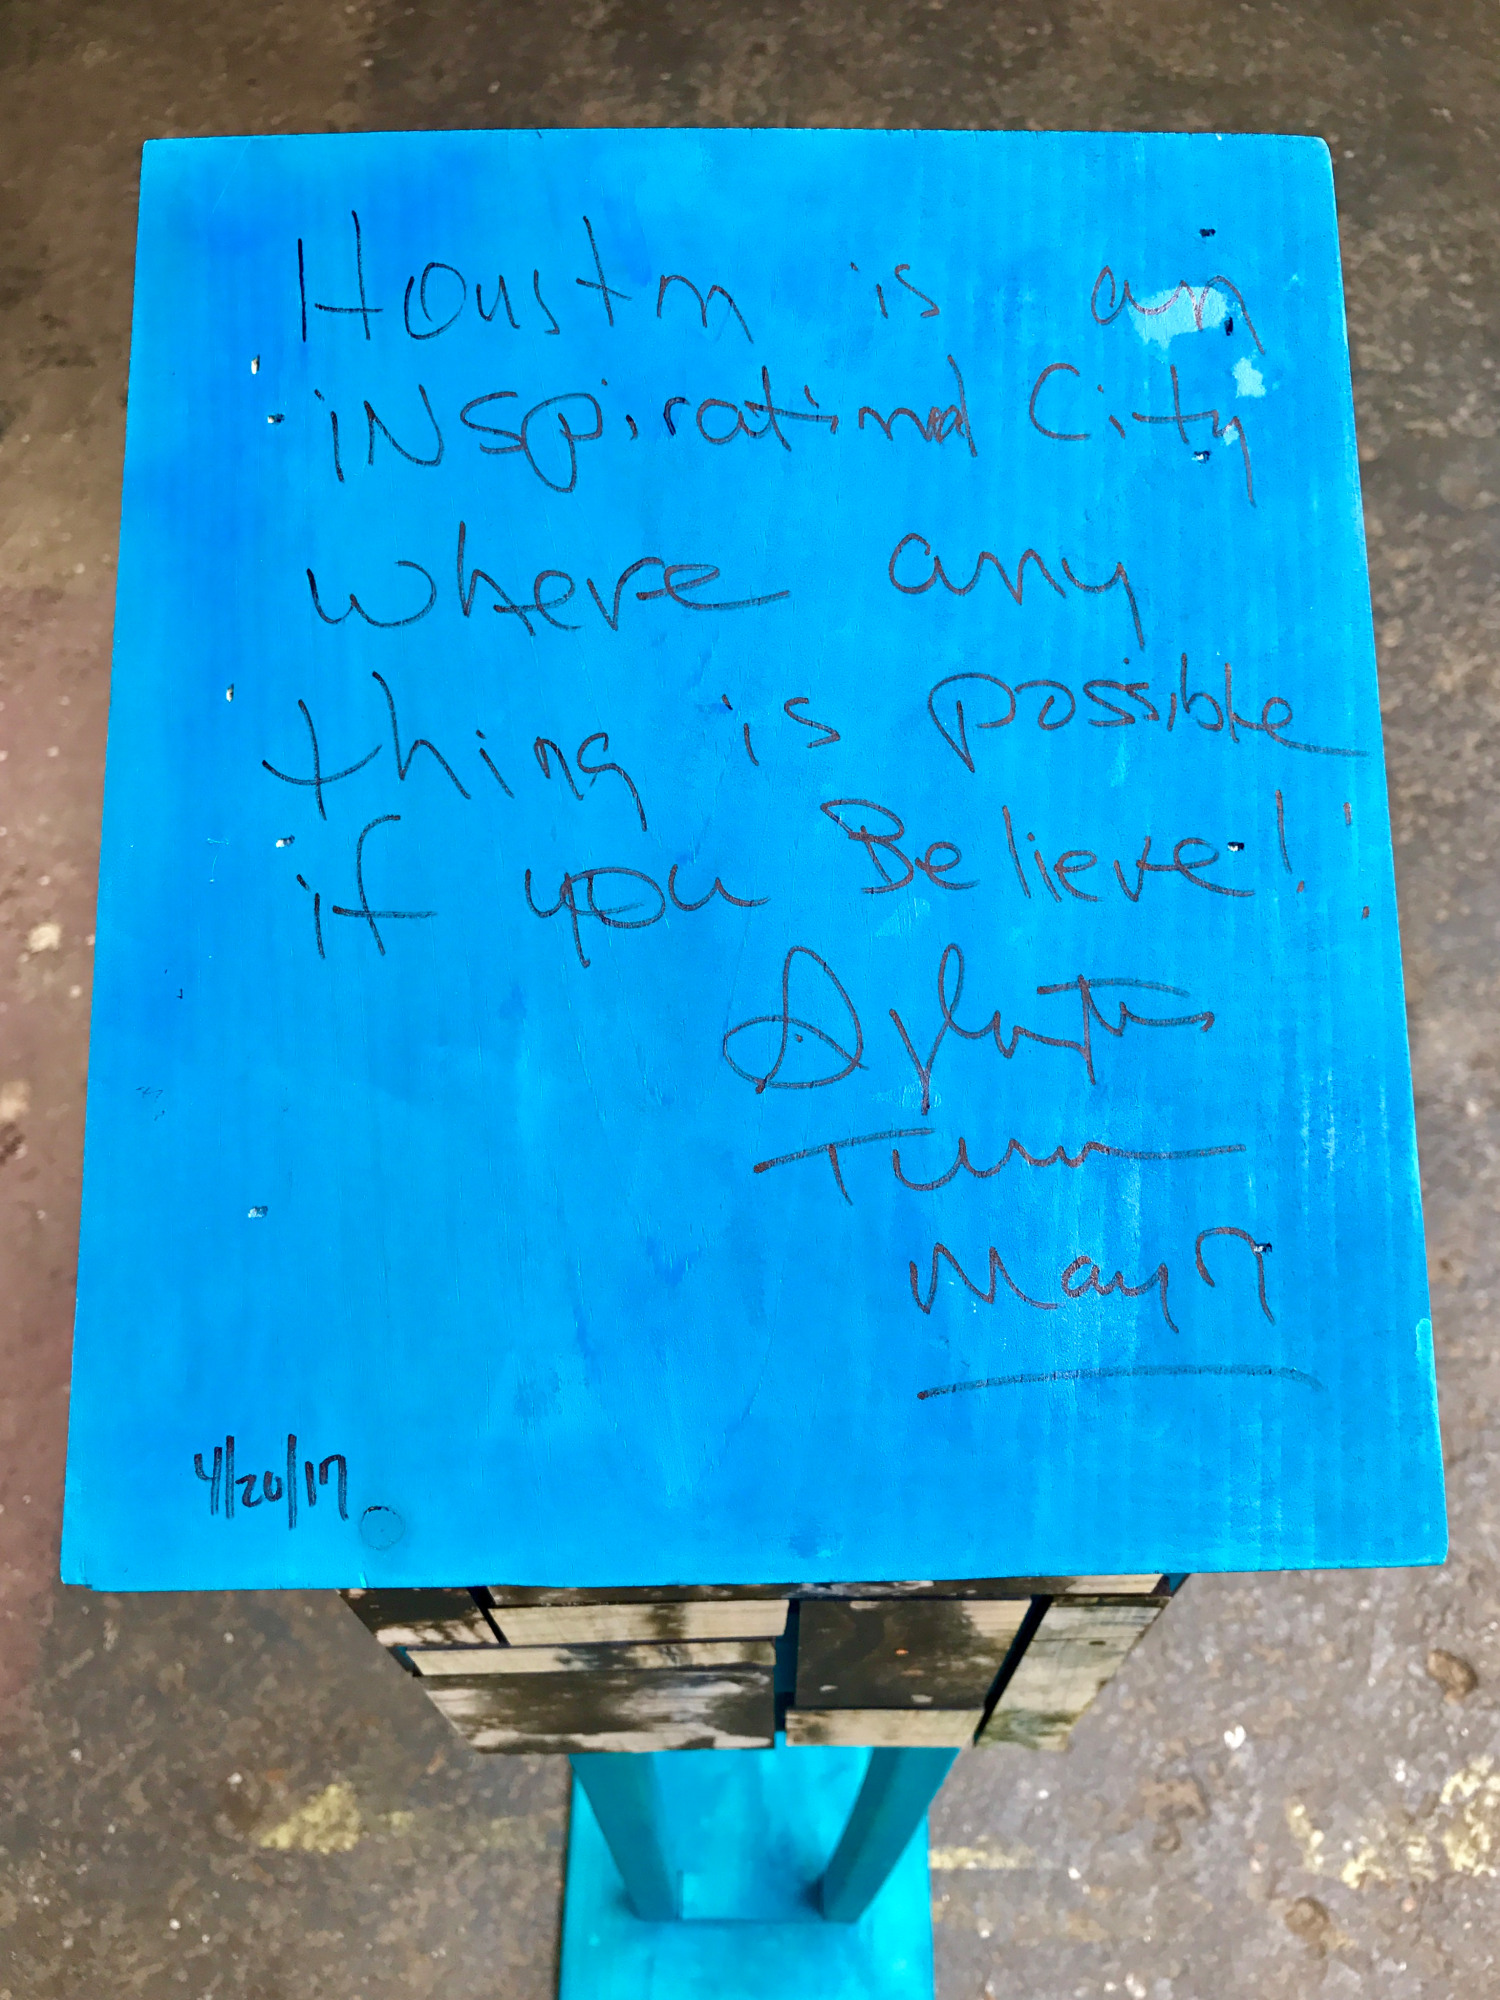 Houston is an
iNspirational City
where any
thing is possible
if you Believe!
Sylvester
Turner
Mayor
4/20/17